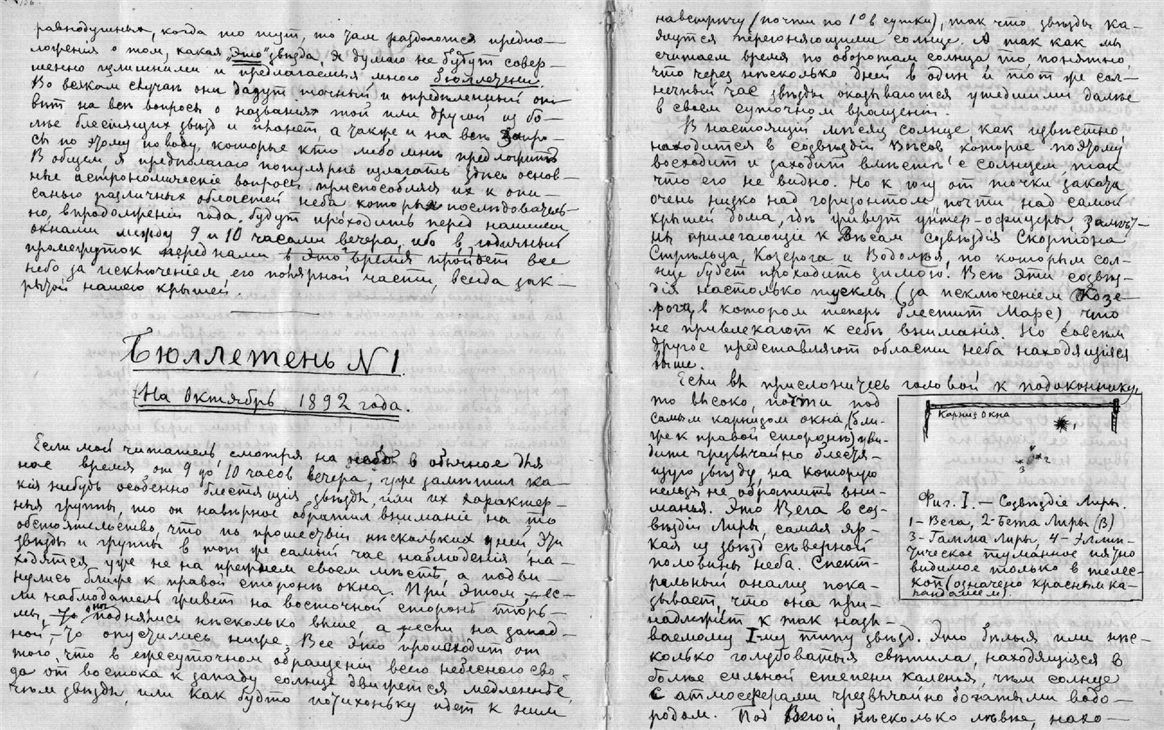 равнодушные, когда то тут, то там раздаются предпо-
ложения о том, какая "это" звѣзда, я думаю не будут совер-
шенно излишними и предлагаемыя мною бюллетени.
Во всяком случаѣ они дадут точный и опредѣленный от-
вѣт на всѣ вопросы о названіях той или другой из бо-
лѣе блестящих звѣзд и планет а также и на всѣ вопро-
сы по этому поводу, которые кто либо мнѣ предложитъ
В общем я предполагаю популярно излагать здѣсь основ-
ные астрономическіе вопросы, приспособляя их к опи-
санью различных областей неба которыя послѣдователь-
но, впродолженіи года, будут проходить перед нашими
окнами между 9 и 10 часами вечера, ибо в годичный
промежуток перед нами в это время пройдет все
небо за исключеніем его полярной части, всегда зак-
рытой нашею крышей.
Бюллетень N 1.
(На Октябрь, 1892 года.
Если мой читатель смотря на небо в обычное для
меня время от 9 до 10 часов вечера, уже замѣтил ка-
кія нибудь особенно блестящія звѣзды, или их характер-
ныя группы, то он навѣрное обратил вниманіе на то
обстоятельство, что по прошествіи нѣскольких дней, эти
звѣзды и группы в тот же самый час наблюденія, на-
ходятся уже не на прежнем своем мѣстѣ, а подви-
нулись ближе к правой сторонѣ окна. При этом —ес-
ли наблюдатель живет на восточной сторонѣ тюрь-
мы, то они поднялись нѣсколько выше, а если на запад-
ной — то опустились ниже. Все это происходит от
того, что в ежесуточном обращеніи всего небеснаго сво-
да от востока к западу солнце движется медленнѣе,
чѣм звѣзды, или как будто потихоньку идет к ним
навстрѣчу (почти по 1° в сутки), так что звѣзды ка-
жутся перегоняющими солнце. А так как мы
считаем время по оборотам солнца то, понятно,
что через нѣсколько дней в один и тот же сол-
нечный час звѣзды оказываются ушедшими далѣе
в своем суточном вращеніи.
В настоящій мѣсяц солнце как извѣстно
находится в созвѣздіи Вѣсов которое поэтому
восходит и заходит вмѣстѣ с солнцем так
что его не видно. Но к югу от точки заката
очень низко над горизонтом почти над самой
крышей дома, гдѣ живут унтер-офицеры, замѣт-
ны прилегающіе к Вѣсам созвѣздія Скорпіона
Стрѣльца, Козерога и Водолея, по которым сол-
нце будет проходить зимою. Всѣ эти созвѣз-
дія настолько тусклы (за исключеніем Козе-
рога, в котором теперь блестит Марс) что
не привлекают к себѣ вниманія. Но совсѣм
другое представляют области неба находящіяся
выше.
Если вы прислонитесь головой к подоконнику,
то высоко, почти под
самым карнизом окна, (бли-
же к правой сторонѣ) уви-
дите чрезвычайно блестя-
щую звѣзду, на которую
нельзя не обратить вни-
манья. Это Вега в соз-
вѣздіи Лиры, самая яр-
кая из звѣзд сѣверной
половины неба. Спект-
ральный анализ пока-
зывает, что она при-
надлежит к так назы-
ваемому I-му типу звѣзд. Это бѣлыя или нѣс-
колько голубоватыя свѣтила, находящіяся в
болѣе сильной степени каленья, чѣм солнце
с атмосферами чрезвычайно богатыми водо-
родом. Под Вегой, нѣсколько лѣвѣе, нахо-
Карниз Окна
1
4
2
3
Фиг. I. — Созвѣздіе Лиры.
1 - Вега, 2 - Бета Лиры (β)
3 - Гамма Лиры, 4 - Эллип-
тическое туманное пятно
видимое только в телес-
коп (означено красным ка-
рандашем).